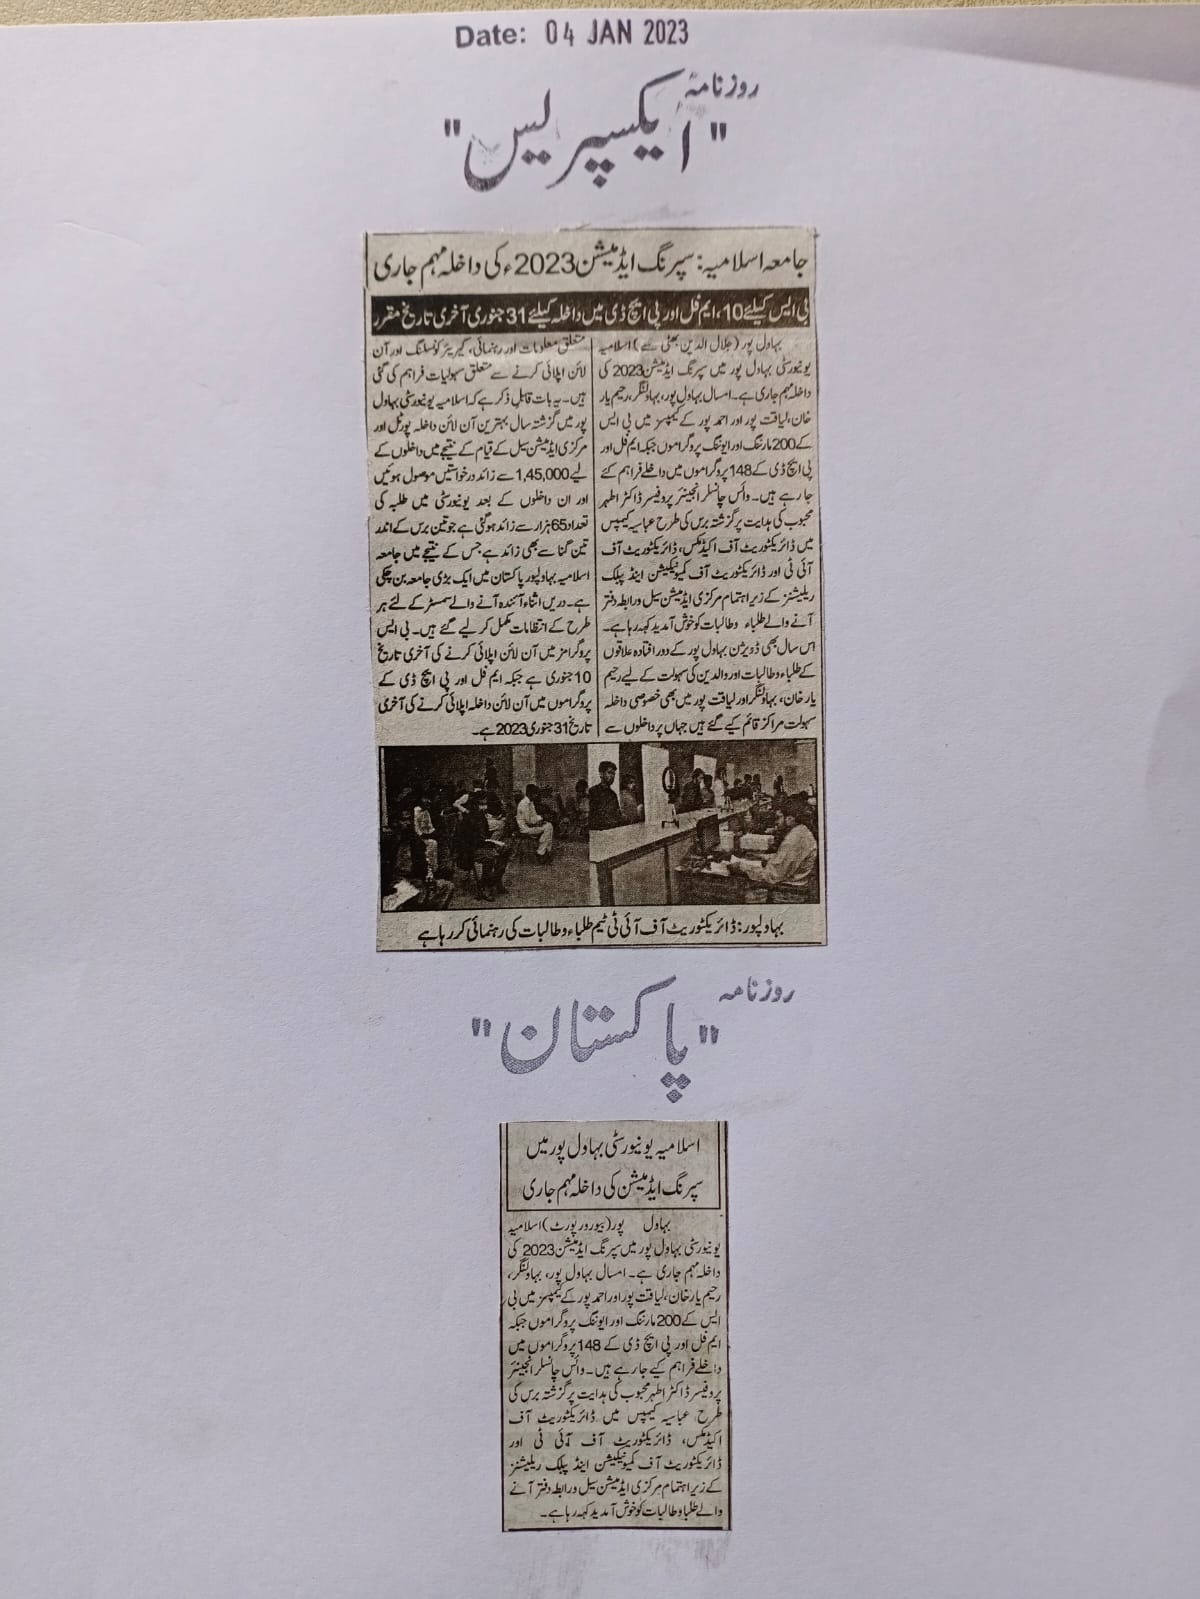 Date: 04 JAN 2023
روزنامہ
"ایکسپریس"
جامعہ اسلامیہ: سپرنگ ایڈمیشن 2023ء کی داخلہ مہم جاری
بی ایس کیلئے 10، ایم فل اور پی ایچ ڈی میں داخلہ کیلئے 31 جنوری آخری تاریخ مقرر
بہاول پور (جلال الدین بھٹی سے) اسلامیہ
یونیورسٹی بہاول پور میں سپرنگ ایڈمیشن 2023 کی
داخلہ مہم جاری ہے۔ امسال بہاول پور، بہاولنگر، رحیم یار
خان، لیاقت پور اور احمد پور کے کیمپسز میں بی ایس
کے 200 مارننگ اور ایوننگ پروگراموں جبکہ ایم فل اور
پی ایچ ڈی کے 148 پروگراموں میں داخلے فراہم کئے
جا رہے ہیں۔ وائس چانسلر انجینئر پروفیسر ڈاکٹر اطہر
محبوب کی ہدایت پر گزشتہ برس کی طرح عباسیہ کیمپس
میں ڈائریکٹوریٹ آف اکیڈمکس، ڈائریکٹوریٹ آف
آئی ٹی اور ڈائریکٹوریٹ آف کمیونیکیشن اینڈ پبلک
ریلیشنز کے زیر اہتمام مرکزی ایڈمیشن سیل و رابطہ دفتر
آنے والے طلباء و طالبات کو خوش آمدید کہہ رہا ہے۔
اس سال بھی ڈویژن بہاول پور کے دور افتادہ علاقوں
کے طلباء و طالبات اور والدین کی سہولت کے لیے رحیم
یار خان، بہاولنگر اور لیاقت پور میں بھی خصوصی داخلہ
سہولت مراکز قائم کیے گئے ہیں جہاں پر داخلوں سے
متعلق معلومات اور رہنمائی، کیریئر کونسلنگ اور آن
لائن اپلائی کرنے سے متعلق سہولیات فراہم کی گئی
ہیں۔ یہ بات قابل ذکر ہے کہ اسلامیہ یونیورسٹی بہاول
پور میں گزشتہ سال بہترین آن لائن داخلہ پورٹل اور
مرکزی ایڈمیشن سیل کے قیام کے نتیجے میں داخلوں کے
لیے 1,45,000 سے زائد درخواستیں موصول ہوئیں
اور ان داخلوں کے بعد یونیورسٹی میں طلبہ کی
تعداد 65 ہزار سے زائد ہوگئی ہے جو تین برس کے اندر
تین گنا سے بھی زائد ہے جس کے نتیجے میں جامعہ
اسلامیہ بہاولپور پاکستان میں ایک بڑی جامعہ بن چکی
ہے۔ دریں اثناء آئندہ آنے والے سمسٹر کے لئے ہر
طرح کے انتظامات مکمل کر لیے گئے ہیں۔ بی ایس
پروگرامز میں آن لائن اپلائی کرنے کی آخری تاریخ
10 جنوری ہے جبکہ ایم فل اور پی ایچ ڈی کے
پروگراموں میں آن لائن داخلہ اپلائی کرنے کی آخری
تاریخ 31 جنوری 2023 ہے۔
بہاولپور: ڈائریکٹوریٹ آف آئی ٹی ٹیم طلباء و طالبات کی رہنمائی کر رہا ہے
روزنامہ
"پاکستان"
اسلامیہ یونیورسٹی بہاول پور میں
سپرنگ ایڈمیشن کی داخلہ مہم جاری
بہاول پور (بیورو رپورٹ) اسلامیہ
یونیورسٹی بہاول پور میں سپرنگ ایڈمیشن 2023 کی
داخلہ مہم جاری ہے۔ امسال بہاول پور، بہاولنگر،
رحیم یار خان، لیاقت پور اور احمد پور کے کیمپسز میں بی
ایس کے 200 مارننگ اور ایوننگ پروگراموں جبکہ
ایم فل اور پی ایچ ڈی کے 148 پروگراموں میں
داخلے فراہم کیے جا رہے ہیں۔ وائس چانسلر انجینئر
پروفیسر ڈاکٹر اطہر محبوب کی ہدایت پر گزشتہ برس کی
طرح عباسیہ کیمپس میں ڈائریکٹوریٹ آف
اکیڈمکس، ڈائریکٹوریٹ آف آئی ٹی اور
ڈائریکٹوریٹ آف کمیونیکیشن اینڈ پبلک ریلیشنز
کے زیر اہتمام مرکزی ایڈمیشن سیل و رابطہ دفتر آنے
والے طلبا و طالبات کو خوش آمدید کہہ رہا ہے۔